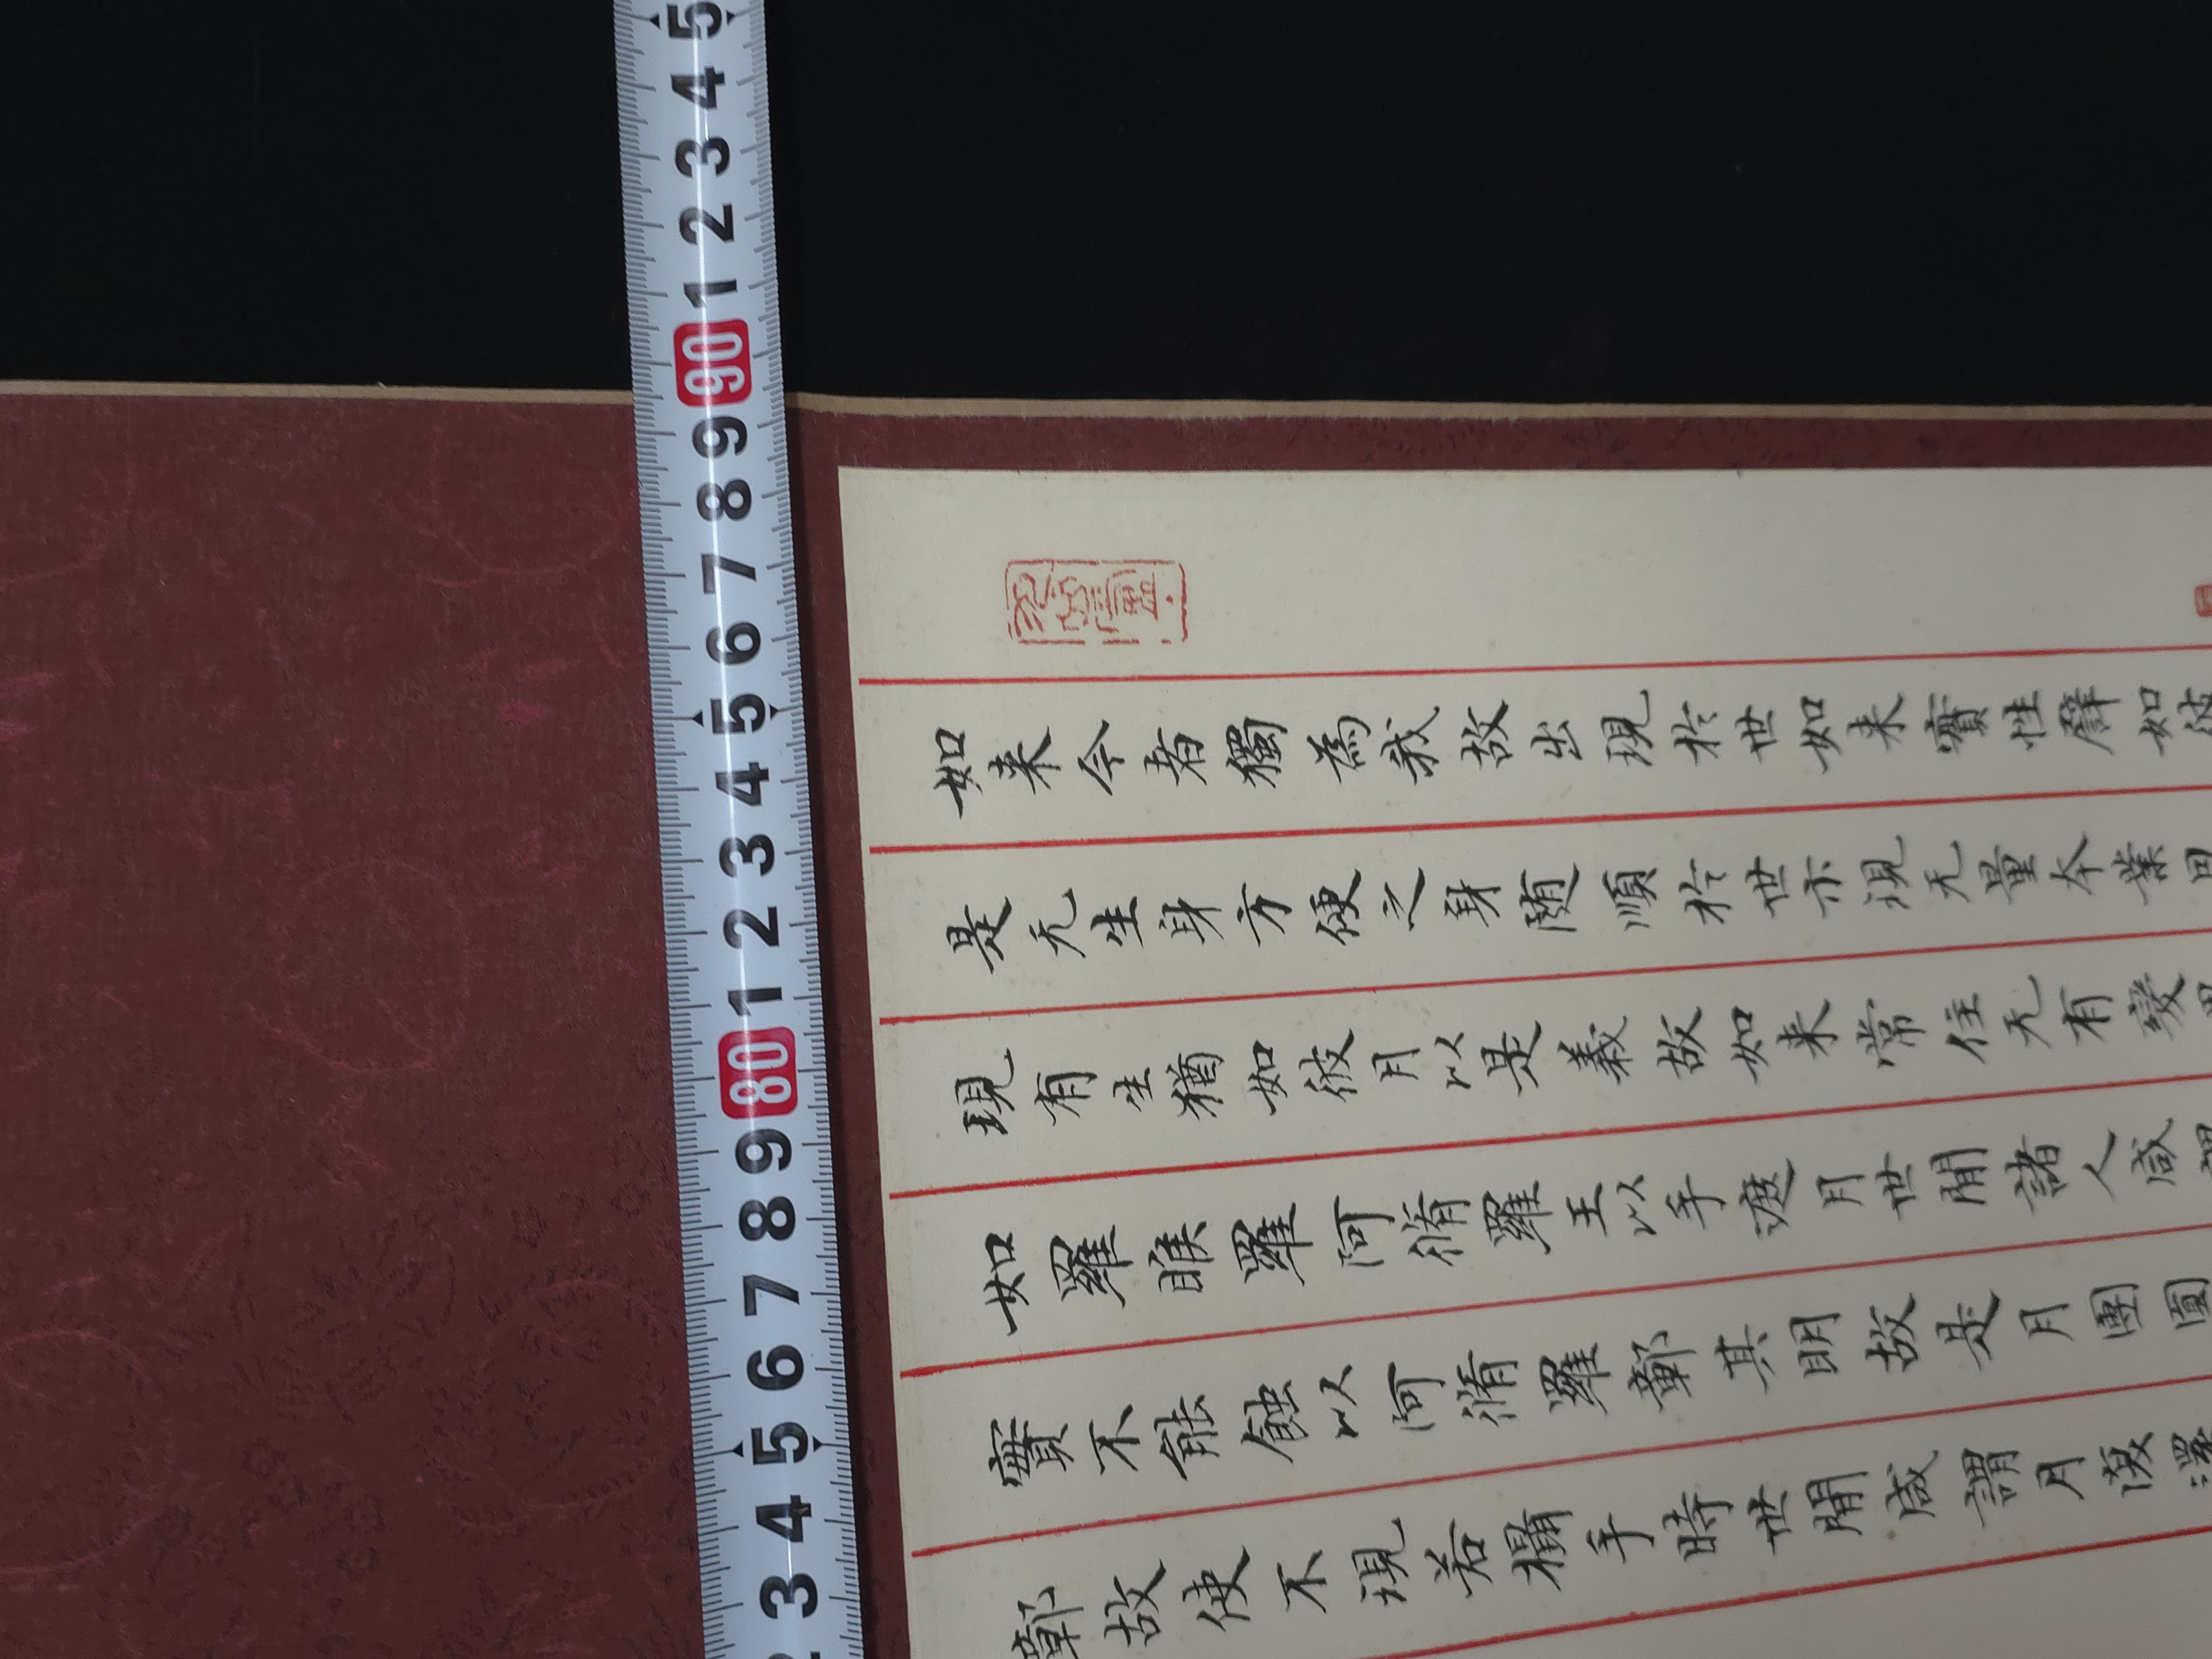 5
4
3
2
1
90
9
8
7
6
5
4
3
2
1
80
9
8
7
6
5
4
3
如来今者獨為我故出現於世如来實性譬如彼
是无生身方便之身随順於世示現无量本業因
現有生猶如彼月以是義故如来常住无有變
如羅睺羅阿脩羅王以手遮月世間諸人咸
實不能蝕以阿脩羅鄣其明故是月團圓
鄣故使不現若攝手時世間咸謂月復還